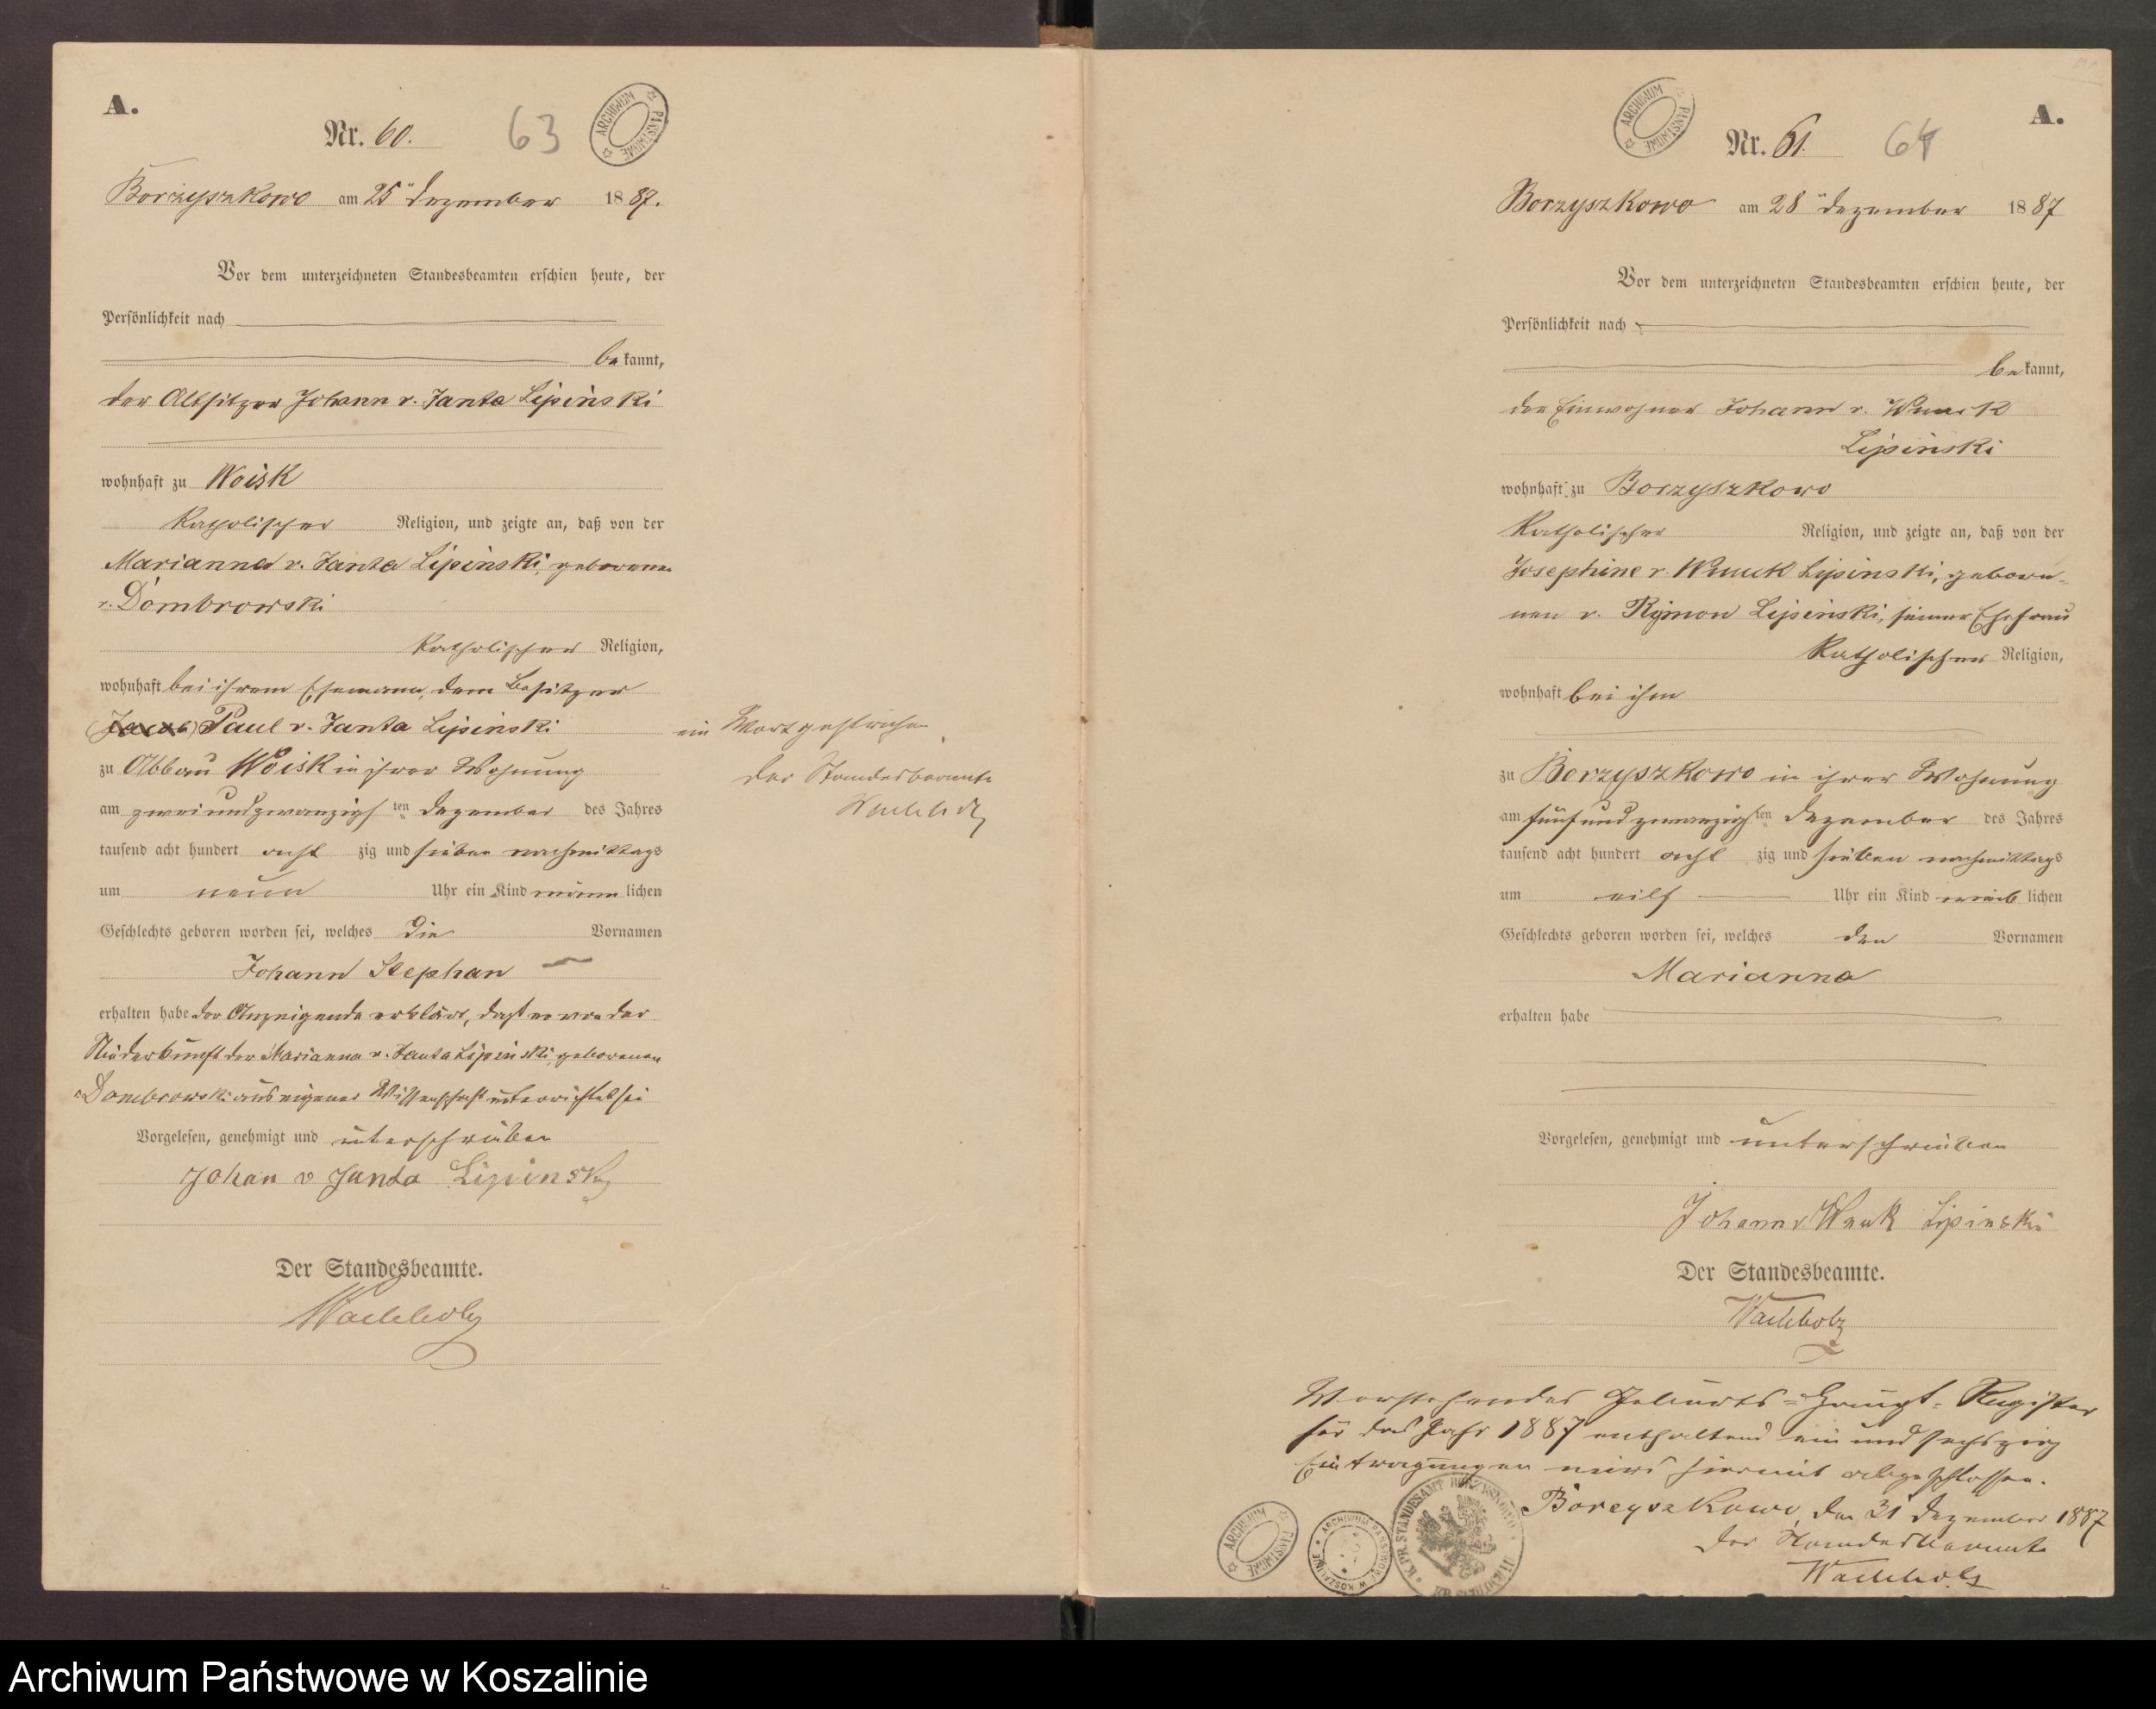 A.
Nr. 60.
63
ARCHIWUM PAŃSTWOWE
Borzyszkowo am 25ten Dezember 1887.
Vor dem unterzeichneten Standesbeamten erschien heute, der
Persönlichkeit nach
bekannt,
der Altsitzer Johann v. Janta Lipinski
wohnhaft zu Woisk
katholischer Religion, und zeigte an, daß von der
Marianna v. Janta Lipinski, geborenen
v. Dombrowski
katholischer Religion,
wohnhaft bei ihrem Ehemann, dem Besitzer
Paul v. Janta Lipinski
zu Abbau Woisk in ihrer Wohnung
am zweiundzwanzigsten Dezember des Jahres
tausend acht hundert achtzig und sieben nachmittags
um neun Uhr ein Kind männlichen
Geschlechts geboren worden sei, welches die Vornamen
Johann Stephan
erhalten habe der Anzeigende erklärt, daß er von der
Niederkunft der Marianna v. Janta Lipinski, geborenen
v. Dombrowski aus eigener Wissenschaft unterrichtet sei
Vorgelesen, genehmigt und unterschrieben
Johan v Janta Lipinsky
Der Standesbeamte.
Wachholz
ein Wort gestrichen
Der Standesbeamte
Wachholz
ARCHIWUM PAŃSTWOWE
A.
Nr. 61.
64
Borzyszkowo am 28ten Dezember 1887
Vor dem unterzeichneten Standesbeamten erschien heute, der
Persönlichkeit nach
bekannt,
der Einwohner Johann v. Wnuck
Lipinski
wohnhaft zu Borzyszkowo
katholischer Religion, und zeigte an, daß von der
Josephine v. Wnuck Lipinski, gebore-
nen v. Rymon Lipinski, seiner Ehefrau
katholischer Religion,
wohnhaft bei ihm
zu Borzyszkowo in ihrer Wohnung
am fünfundzwanzigsten Dezember des Jahres
tausend acht hundert achtzig und sieben nachmittags
um eilf Uhr ein Kind weiblichen
Geschlechts geboren worden sei, welches den Vornamen
Marianna
erhalten habe
Vorgelesen, genehmigt und unterschrieben
Johann v Wnuk Lipinski
Der Standesbeamte.
Wachholz
Vorstehendes Geburts-Haupt-Register
für das Jahr 1887 enthaltend ein und sechszig
Eintragungen wird hiermit abgeschlossen.
Borzyszkowo, den 31 Dezember 1887
Der Standesbeamte
Wachholz
ARCHIWUM PAŃSTWOWE
ARCHIWUM PAŃSTWOWE W KOSZALINIE
K. PR. STANDESAMT BORZYSZKOWO
Archiwum Państwowe w Koszalinie